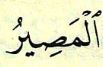 ٱلْمَصِيرُ